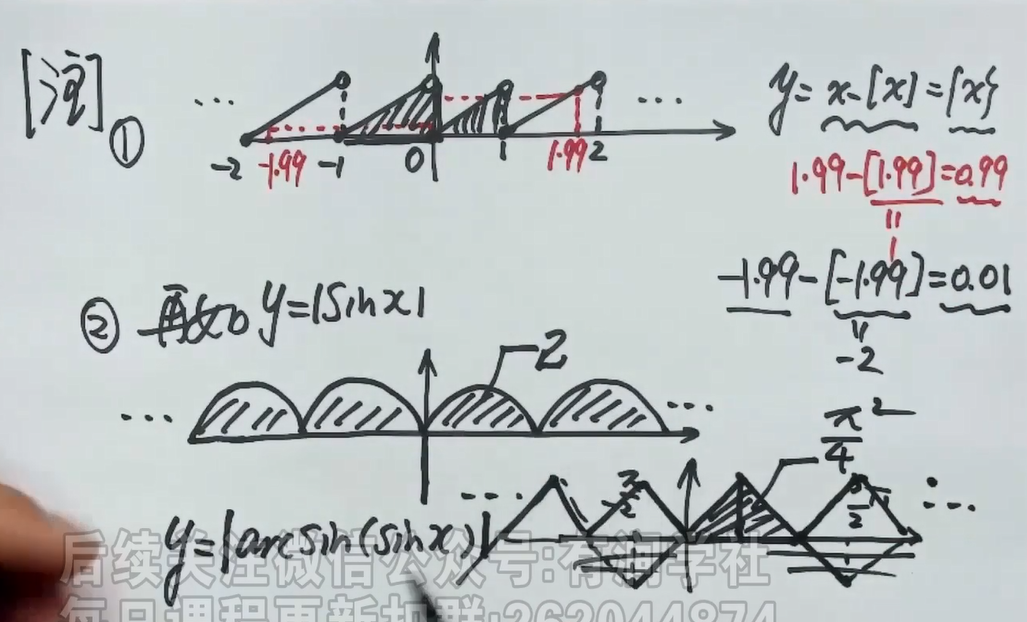 [注]
①
... ...
-2 -1.99 -1 0 1 1.99 2
y=x-[x]={x}
1.99-[1.99]=0.99
=
1
-1.99-[-1.99]=0.01
=
-2
② 再如 y=|sinx|
2
... ...
π²/4
... ...
y=|arcsin(sinx)|
后续关注微信公众号:有润学社
每日课程更新扣群:262044874